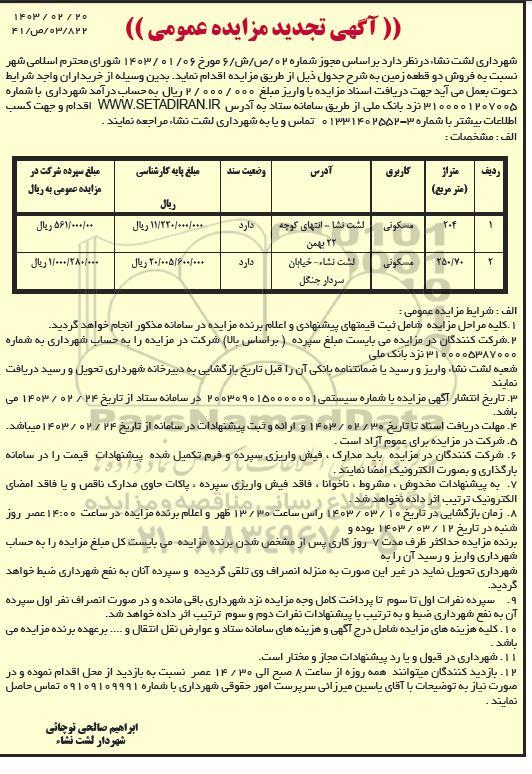 (( آگهی تجدید مزایده عمومی ))
۱۴۰۳ / ۰۲ / ۲۰
۰۳/۸۲۲/ص/۴۱
شهرداری لشت نشاء درنظر دارد براساس مجوز شماره ۰۲/ص/ش/۶ مورخ ۱۴۰۳/۰۱/۰۶ شورای محترم اسلامی شهر
نسبت به فروش دو قطعه زمین به شرح جدول ذیل از طریق مزایده اقدام نماید. بدین وسیله از خریداران واجد شرایط
دعوت بعمل می آید جهت دریافت اسناد مزایده با واریز مبلغ ۲/۰۰۰/۰۰۰ ریال به حساب درآمد شهرداری با شماره
۳۱۰۰۰۰۱۲۰۷۰۰۵ نزد بانک ملی از طریق سامانه ستاد به آدرس WWW.SETADIRAN.IR اقدام و جهت کسب
اطلاعات بیشتر با شماره ۳-۰۱۳۳۱۴۰۲۵۵۲ تماس و یا به شهرداری لشت نشاء مراجعه نمایند .
الف : مشخصات :
ردیف متراژ (متر مربع) کاربری آدرس وضعیت سند مبلغ پایه کارشناسی ریال مبلغ سپرده شرکت در مزایده عمومی به ریال
۱ ۲۰۴ مسکونی لشت نشا - انتهای کوچه ۲۲ بهمن دارد ۱۱/۲۲۰/۰۰۰/۰۰۰ ریال ۵۶۱/۰۰۰/۰۰ ریال
۲ ۲۵۰/۷۰ مسکونی لشت نشاء- خیابان سردار جنگل دارد ۲۰/۰۰۵/۶۰۰/۰۰۰ ریال ۱/۰۰۰/۲۸۰/۰۰۰ ریال
الف : شرایط مزایده عمومی :
۱.کلیه مراحل مزایده شامل ثبت قیمتهای پیشنهادی و اعلام برنده مزایده در سامانه مذکور انجام خواهد گردید.
۲.شرکت کنندگان در مزایده می بایست مبلغ سپرده ( براساس بالا) شرکت در مزایده را به حساب شهرداری به شماره
۳۱۰۰۰۰۵۳۸۷۰۰۰ نزد بانک ملی
شعبه لشت نشاء واریز و رسید یا ضمانتنامه بانکی آن را قبل تاریخ بازگشایی به دبیرخانه شهرداری تحویل و رسید دریافت
نمایند
۳. تاریخ انتشار آگهی مزایده با شماره سیستمی۲۰۰۳۰۹۰۱۵۰۰۰۰۰۰۱ در سامانه ستاد از تاریخ ۲۴ / ۰۲ / ۱۴۰۳ می
باشد.
۴. مهلت دریافت اسناد تا تاریخ ۳۰ / ۰۲ / ۱۴۰۳ و ارائه و ثبت پیشنهادات در سامانه از تاریخ ۲۴ / ۰۲ / ۱۴۰۳ میباشد.
۵. شرکت در مزایده برای عموم آزاد است .
۶. شرکت کنندگان در مزایده باید مدارک ، فیش واریزی سپرده و فرم تکمیل شده پیشنهادات قیمت را در سامانه
بارگذاری و بصورت الکترونیک امضا نمایند .
۷. به پیشنهادات مخدوش ، مشروط ، ناخوانا ، فاقد فیش واریزی سپرده ، پاکات حاوی مدارک ناقص و یا فاقد امضای
الکترونیک ترتیب اثر داده نخواهد شد.
۸. زمان بازگشایی در تاریخ ۱۰ / ۰۳ / ۱۴۰۳ راس ساعت ۳۰ / ۱۳ ظهر و اعلام برنده مزایده در ساعت ۱۴:۰۰ عصر روز
شنبه در تاریخ ۱۲ / ۰۳ / ۱۴۰۳ بوده و
برنده مزایده حداکثر ظرف مدت ۷ روز کاری پس از مشخص شدن برنده مزایده می بایست کل مبلغ مزایده را به حساب
شهرداری واریز و رسید آن را به
شهرداری تحویل نماید در غیر این صورت به منزله انصراف وی تلقی گردیده و سپرده آنان به نفع شهرداری ضبط خواهد
گردید.
۹. سپرده نفرات اول تا سوم تا پرداخت کامل وجه مزایده نزد شهرداری باقی مانده و در صورت انصراف نفر اول سپرده
آن به نفع شهرداری ضبط و به ترتیب با پیشنهادات نفرات دوم و سوم ترتیب اثر داده خواهد شد.
۱۰. کلیه هزینه های مزایده شامل درج آگهی و هزینه های سامانه ستاد و عوارض نقل انتقال و .... برعهده برنده مزایده می
باشد .
۱۱. شهرداری در قبول و یا رد پیشنهادات مجاز و مختار است.
۱۲. بازدید کنندگان میتوانند همه روزه از ساعت ۸ صبح الی ۳۰ / ۱۴ عصر نسبت به بازدید از محل اقدام نموده و در
صورت نیاز به توضیحات با آقای یاسین میرزائی سرپرست امور حقوقی شهرداری با شماره ۰۹۱۰۹۱۰۹۹۹۱ تماس حاصل
نمایند .
ابراهیم صالحی توچائی
شهردار لشت نشاء
ParsNamadData
۰۲۱-۸۸۳۴۹۶۷۰